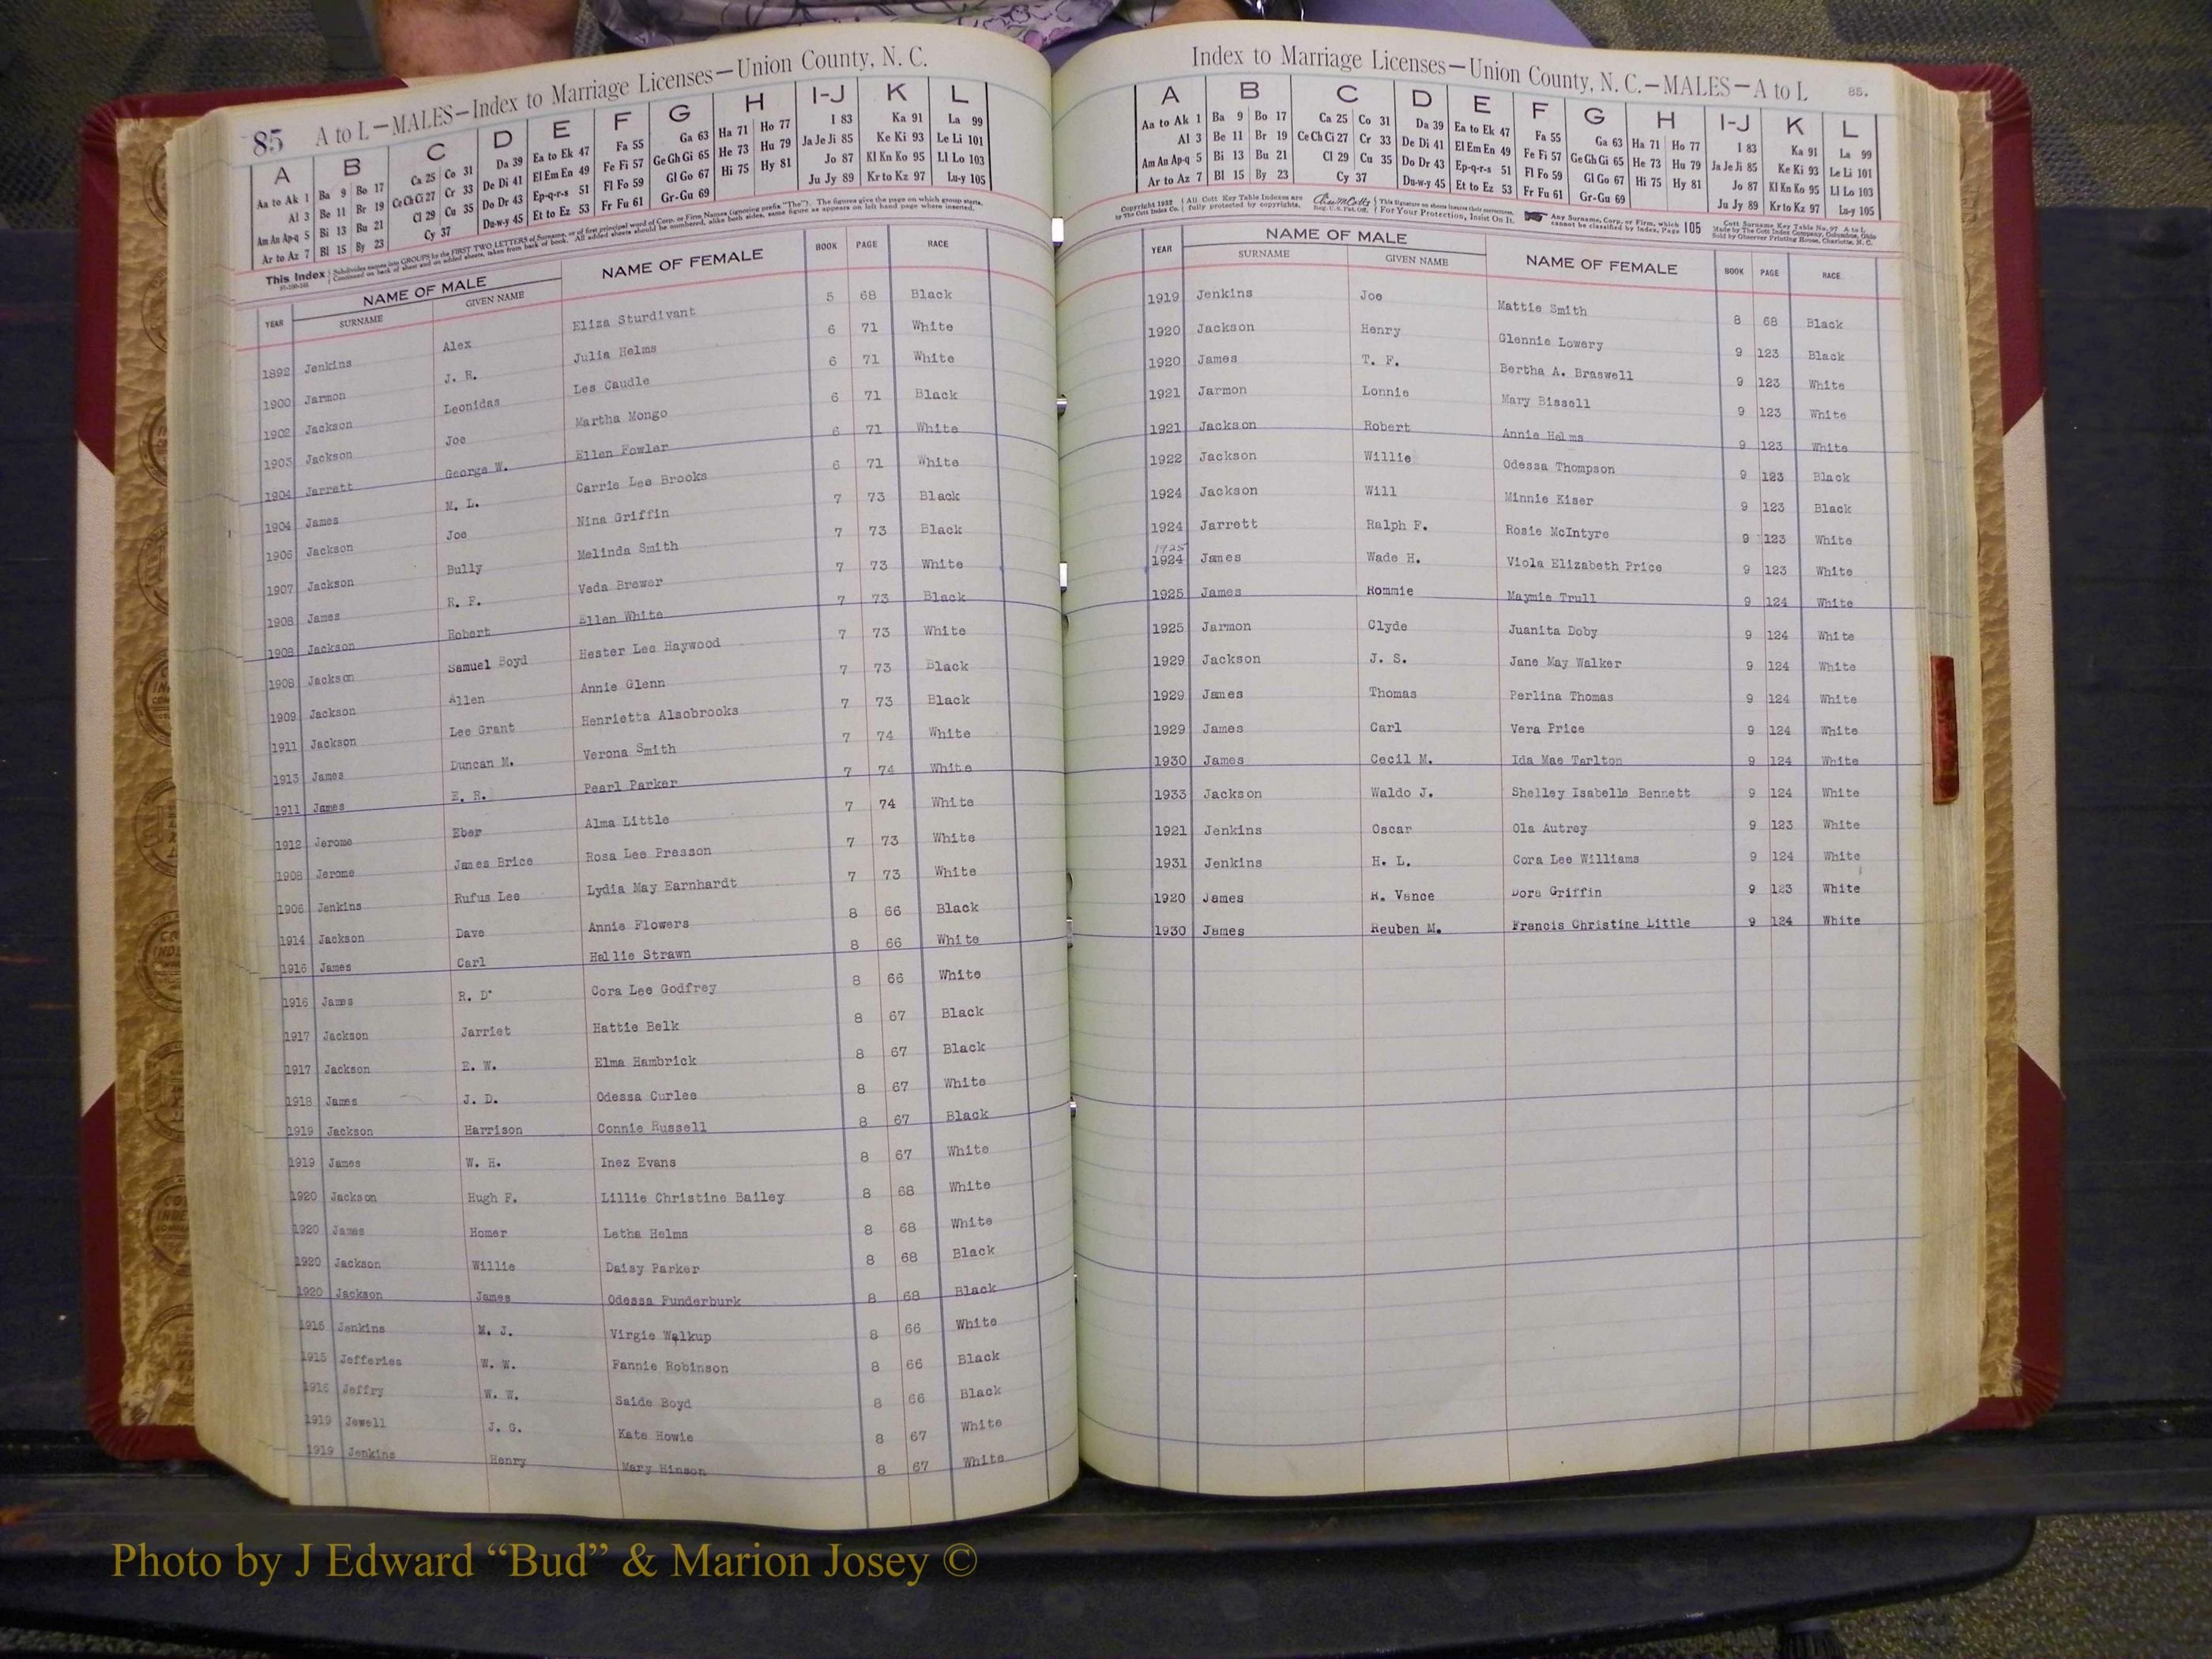 85 A to L—MALES—Index to Marriage Licenses—Union County, N. C.
A B C D E F G H I-J K L
Aa to Ak 1 Ba 9 Bo 17 Ca 25 Co 31 Da 39 Ea to Ek 47 Fa 55 Ga 63 Ha 71 Ho 77 I 83 Ka 91 La 99
Al 3 Be 11 Br 19 Ce Ch Ci 27 Cr 33 De Di 41 El Em En 49 Fe Fi 57 Ge Gh Gi 65 He 73 Hu 79 Ja Je Ji 85 Ke Ki 93 Le Li 101
Am An Ap-q 5 Bi 13 Bu 21 Cl 29 Cu 35 Do Dr 43 Ep-q-r-s 51 Fl Fo 59 Gl Go 67 Hi 75 Hy 81 Jo 87 Kl Kn Ko 95 Ll Lo 103
Ar to Az 7 Bl 15 By 23 Cy 37 Du-w-y 45 Et to Ez 53 Fr Fu 61 Gr-Gu 69 Ju Jy 89 Kr to Kz 97 Lu-y 105
This Index Subdivides names into GROUPS by the FIRST TWO LETTERS of Surname, or of first principal word of Corp. or Firm Names (ignoring prefix "The"). The figures give the page on which group starts.
Continued on back of sheet and on added sheets, taken from back of book. All added sheets should be numbered, alike both sides, same figure as appears on left hand page where inserted.
YEAR NAME OF MALE NAME OF FEMALE BOOK PAGE RACE
SURNAME GIVEN NAME
1892 Jenkins Alex Eliza Sturdivant 5 68 Black
1900 Jarmon J. R. Julia Helms 6 71 White
1902 Jackson Leonidas Les Caudle 6 71 White
1903 Jackson Joe Martha Mongo 6 71 Black
1904 Jarrett George W. Ellen Fowler 6 71 White
1904 James M. L. Carrie Lee Brooks 6 71 White
1906 Jackson Joe Nina Griffin 7 73 Black
1907 Jackson Bully Melinda Smith 7 73 Black
1908 James R. F. Veda Brewer 7 73 White
1908 Jackson Robert Ellen White 7 73 Black
1908 Jackson Samuel Boyd Hester Lee Haywood 7 73 White
1909 Jackson Allen Annie Glenn 7 73 Black
1911 Jackson Lee Grant Henrietta Alsobrooks 7 73 Black
1913 James Duncan M. Verona Smith 7 74 White
1911 James E. R. Pearl Parker 7 74 White
1912 Jerome Eber Alma Little 7 74 White
1908 Jerome James Brice Rosa Lee Presson 7 73 White
1906 Jenkins Rufus Lee Lydia May Earnhardt 7 73 White
1914 Jackson Dave Annie Flowers 8 66 Black
1916 James Carl Hallie Strawn 8 66 White
1916 James R. D. Cora Lee Godfrey 8 66 White
1917 Jackson Jarriet Hattie Belk 8 67 Black
1917 Jackson E. W. Elma Hambrick 8 67 Black
1918 James J. D. Odessa Curlee 8 67 White
1919 Jackson Harrison Connie Russell 8 67 Black
1919 James W. H. Inez Evans 8 67 White
1920 Jackson Hugh F. Lillie Christine Bailey 8 68 White
1920 James Homer Letha Helms 8 68 White
1920 Jackson Willie Daisy Parker 8 68 Black
1920 Jackson James Odessa Funderburk 8 68 Black
1916 Jenkins M. J. Virgie Walkup 8 66 White
1915 Jefferies W. W. Fannie Robinson 8 66 Black
1916 Jeffry W. W. Saide Boyd 8 66 Black
1919 Jewell J. G. Kate Howie 8 67 White
1919 Jenkins Henry Mary Hinson 8 67 White
Index to Marriage Licenses—Union County, N. C.—MALES—A to L 85.
A B C D E F G H I-J K L
Aa to Ak 1 Ba 9 Bo 17 Ca 25 Co 31 Da 39 Ea to Ek 47 Fa 55 Ga 63 Ha 71 Ho 77 I 83 Ka 91 La 99
Al 3 Be 11 Br 19 Ce Ch Ci 27 Cr 33 De Di 41 El Em En 49 Fe Fi 57 Ge Gh Gi 65 He 73 Hu 79 Ja Je Ji 85 Ke Ki 93 Le Li 101
Am An Ap-q 5 Bi 13 Bu 21 Cl 29 Cu 35 Do Dr 43 Ep-q-r-s 51 Fl Fo 59 Gl Go 67 Hi 75 Hy 81 Jo 87 Kl Kn Ko 95 Ll Lo 103
Ar to Az 7 Bl 15 By 23 Cy 37 Du-w-y 45 Et to Ez 53 Fr Fu 61 Gr-Gu 69 Ju Jy 89 Kr to Kz 97 Lu-y 105
Copyright 1932 by The Cott Index Co. All Cott Key Table Indexes are fully protected by copyrights. Reg. U. S. Pat. Off. This Signature on sheets insures their correctness. For Your Protection, Insist On It. Any Surname, Corp. or Firm, which cannot be classified by Index, Page 105 Cott Surname Key Table No. 97 A to L Made by The Cott Index Company, Columbus, Ohio Sold by Observer Printing House, Charlotte, N. C.
YEAR NAME OF MALE NAME OF FEMALE BOOK PAGE RACE
SURNAME GIVEN NAME
1919 Jenkins Joe Mattie Smith 8 68 Black
1920 Jackson Henry Glennie Lowery 9 123 Black
1920 James T. F. Bertha A. Braswell 9 123 White
1921 Jarmon Lonnie Mary Bissell 9 123 White
1921 Jackson Robert Annie Helms 9 123 White
1922 Jackson Willie Odessa Thompson 9 123 Black
1924 Jackson Will Minnie Kiser 9 123 Black
1924 Jarrett Ralph F. Rosie McIntyre 9 123 White
1925
1924 James Wade H. Viola Elizabeth Price 9 123 White
1925 James Hommie Maymie Trull 9 124 White
1925 Jarmon Clyde Juanita Doby 9 124 White
1929 Jackson J. S. Jane May Walker 9 124 White
1929 James Thomas Perlina Thomas 9 124 White
1929 James Carl Vera Price 9 124 White
1930 James Cecil M. Ida Mae Tarlton 9 124 White
1933 Jackson Waldo J. Shelley Isabelle Bennett 9 124 White
1921 Jenkins Oscar Ola Autrey 9 123 White
1931 Jenkins H. L. Cora Lee Williams 9 124 White
1920 James R. Vance Dora Griffin 9 123 White
1930 James Reuben M. Francis Christine Little 9 124 White
Photo by J Edward “Bud” & Marion Josey ©